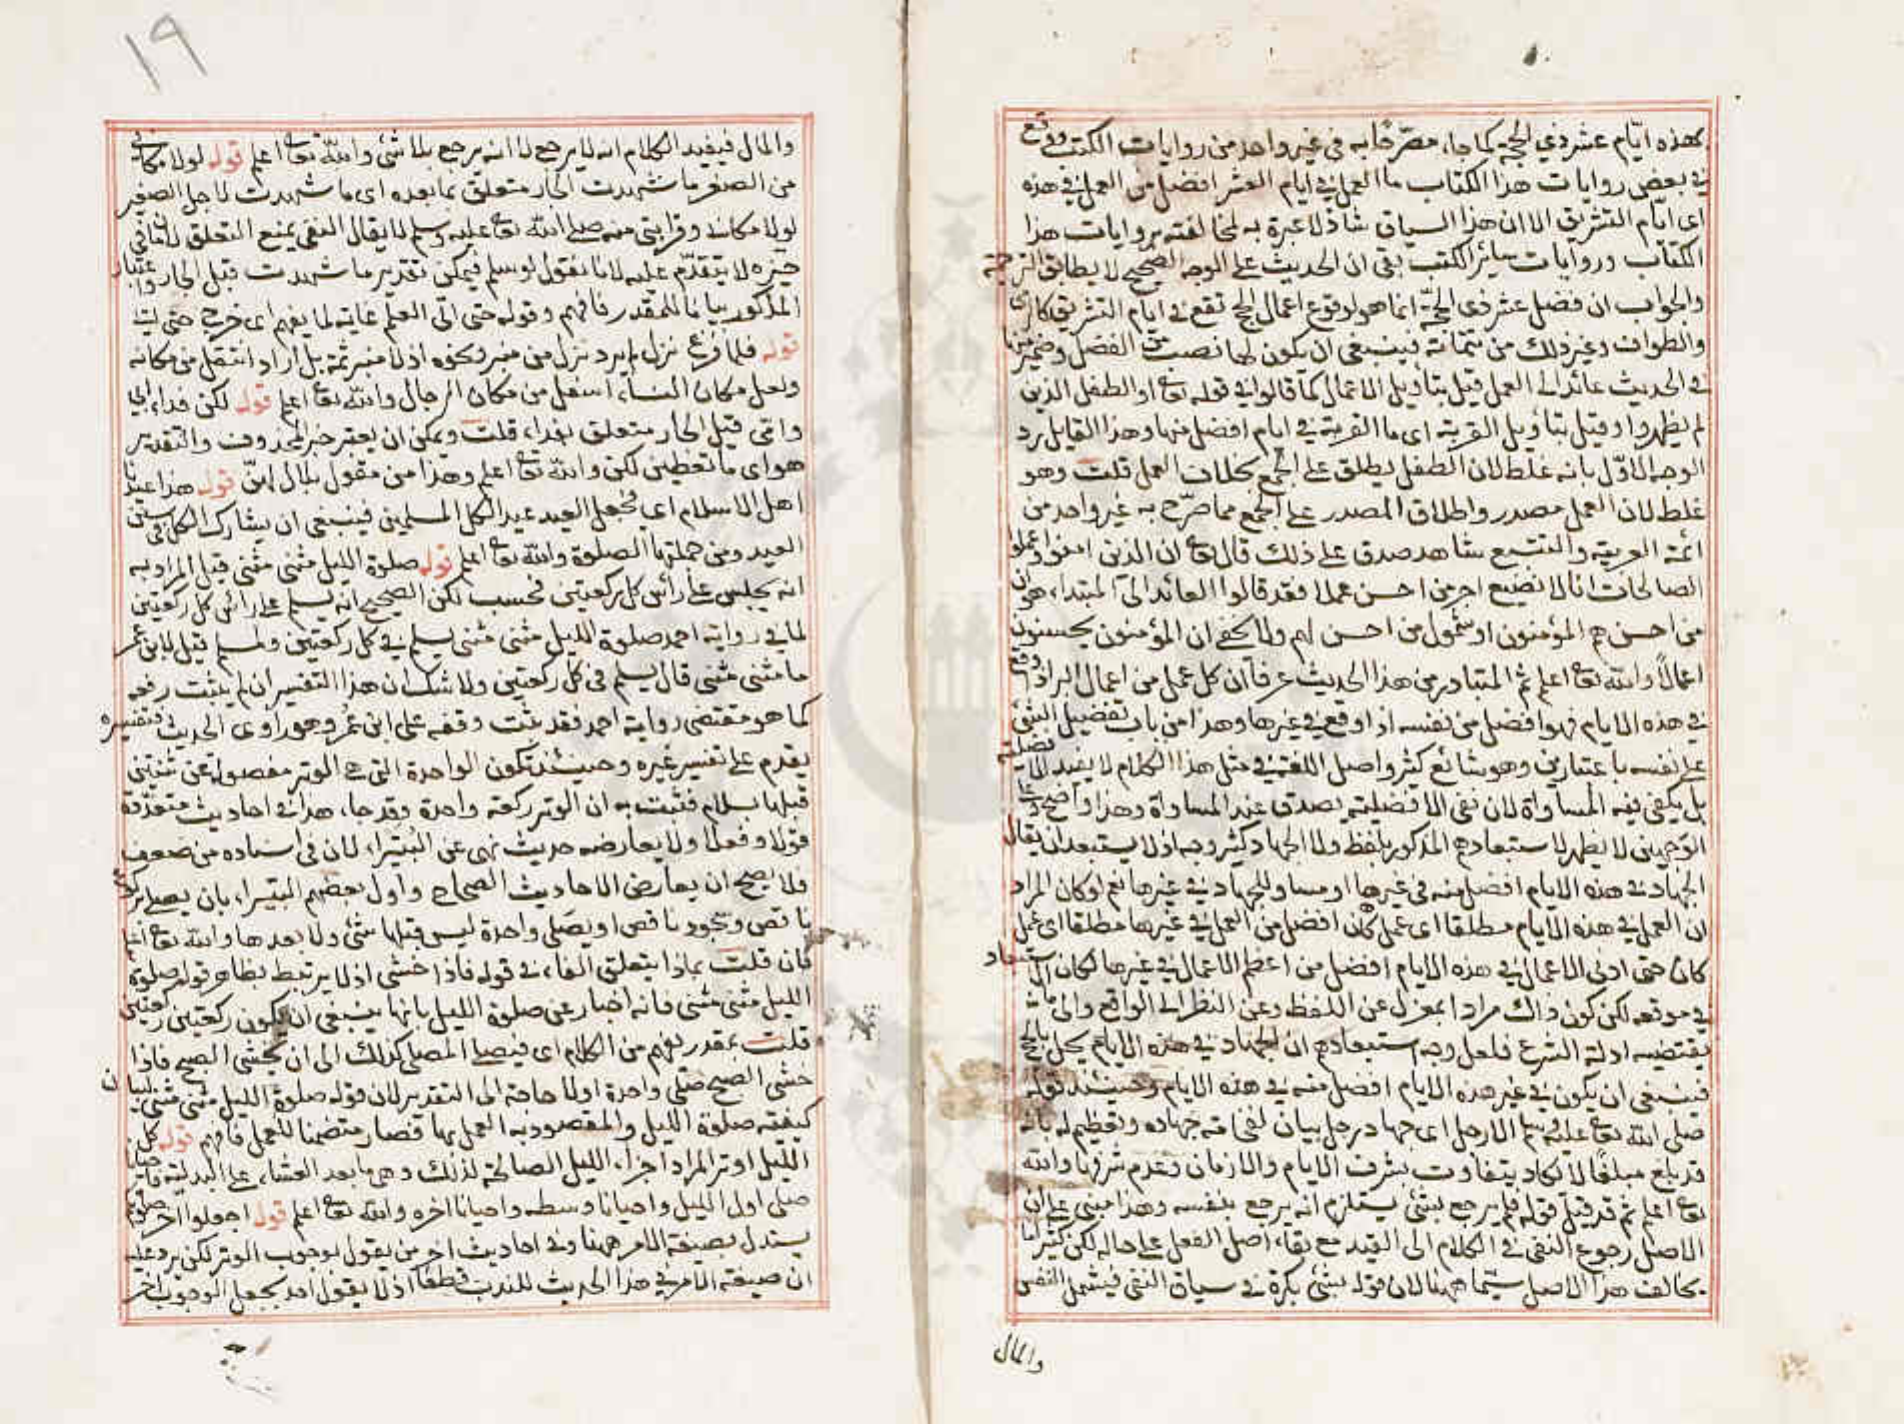 كهذه ايّام عشر ذي الحجة كما جاء مصرّحًا به في غير واحد من روايات الكتب ووقع
في بعض روايات هذا الكتاب ما العمل في ايام العشر افضل من العمل في هذه
اى ايّام التشريق الا ان هذا السياق شاذ لا عبرة به لمخالفته بروايات هذا
الكتاب وروايات سائر الكتب بقى ان الحديث على الوجه الصحيح لا يطابق الترجمة
والجواب ان فضل عشر ذى الحجّة انما هو لوقوع اعمال الحج تقع في ايام التشريق كالرمى
والطواف وغير ذلك من تتماته فينبغى ان يكون لها نصيب من الفضل وضمير منها
في الحديث عائد الى العمل قيل بتأويل الاعمال كما قالوا في قوله تعا او الطفل الذين
لم يظهروا وقيل بتأويل القربة اى ما القربة في ايام افضل منها وهذا القايل رد
الوجه الاوّل بانه غلط لان الطفل يطلق على الجمع بخلاف العمل قلت وهو
غلط لان العمل مصدر واطلاق المصدر على الجمع مما صرّح به غير واحد من
ائمة العربية والتتبع شاهد صدق على ذلك قال تعا ان الذين امنوا وعملوا
الصالحات انا لا نضيع اجر من احسن عملا فقد قالوا العائد الى المبتداء هو ان
من احسن هم المؤمنون او شمول من احسن لهم ولا يخفى ان المؤمنون يحسنون
اعمالاً والله تعا اعلم ثم المتبادر من هذا الحديث عرفا ان كل عمل من اعمال البر اذا وقع
في هذه الايام فهو افضل من نفسه اذا وقع في غيرها وهذا من باب تفضيل الشئ
على نفسه باعتبارين وهو شائع كثير واصل اللغة في مثل هذا الكلام لا يفيد الافضلية
بل يكفى فيه المساواة لان نفى الافضلية يصدق عند المساواة وهذا واضح وعلى
الوجهين لا يظهر لاستبعادهم المذكور بلفظ ولا الجهاد كثير وجه اذ لا يستبعد ان يقال
الجهاد في هذه الايام افضل منه في غيرها او مساو للجهاد في غيرها نعم لو كان المراد
ان العمل في هذه الايام مطلقا اى عمل كان افضل من العمل في غيرها مطلقا اى عمل
كان حتى ادنى الاعمال في هذه الايام افضل من اعظم الاعمال في غيرها لكان الاستبعاد
في موقعه لكن كون ذاك مرادا بمعزل عن اللفظ وعن النظر الى الواقع والى ما
يقتضيه ادلة الشرع فلعل وجه استبعادهم ان الجهاد في هذه الايام يخل بالحج
فينبغى ان يكون في غير هذه الايام افضل منه في هذه الايام وحينئذ قوله
صلى الله تعا عليه وسلم الا رجل اى جهاد رجل بيان لفخامة جهاده وتعظيم له بانه
قد بلغ مبلغًا لا يكاد يتفاوت بشرف الايام والازمان وعدم شرفها والله
تعا اعلم ثم قد قيل قوله فلم يرجع بشئ يستلزم انه يرجع بنفسه وهذا مبنى على ان
الاصل رجوع النفى في الكلام الى القيد مع بقاء اصل الفعل على حاله لكن كثيرا ما
يخالف هذا الاصل سيّما ههنا لان قوله بشئ نكرة في سياق النفى فيشمل النفس
والمال
١٩
والمال فيفيد الكلام انه لا يرجع لا انه يرجع بلا شئ والله تعا اعلم قوله لولا مكانى
من الصغر ما شهدت الجار متعلق بما بعده اى ما شهدت لاجل الصغر
لولا مكانه وقرابتى منه صلى الله تعا عليه وسلم لا يقال النفى يمنع التعلق لان ما في
حيزه لا يتقدّم عليه لانا نقول لو سلم فيمكن تقدير ما شهدت قبل الجار واعتبار
المذكور بيانا للمقدر فافهم وقوله حتى اتى العلم غاية لما يفهم اى خرج حتى اتى
قوله فلما فرغ نزل لم يرد نزل من منبر ونحوه اذ لا منبر ثمة بل اراد انتقل من مكانه
ولعل مكان النساء اسفل من مكان الرجال والله تعا اعلم قوله لكن فداء ابى
وامى قيل الجار متعلق بفداء قلت ويمكن ان يعتبر خبر المحذوف والتقدير
هو اى ما تعطين لكن والله تعا اعلم وهذا من مقول بلال لهنّ قوله هذا عيدنا
اهل الاسلام اى فجعل العيد عيد الكل المسلمين فينبغى ان يشارك الكل في سنن
العيد ومن جملتها الصلوة والله تعا اعلم قوله صلوة الليل مثنى مثنى قيل المراد به
انه يجلس على رأس كل ركعتين فحسب لكن الصحيح انه يسلم على رأس كل ركعتين
لما في رواية احمد صلوة الليل مثنى مثنى يسلم في كل ركعتين ولمسلم قيل لابن عمر
ما مثنى مثنى قال يسلم في كل ركعتين ولا شك ان هذا التفسير ان لم يثبت رفعه
كما هو مقتضى رواية احمد فقد ثبت وقفه على ابن عمر وهو راوى الحديث وتفسيره
يقدم على تفسير غيره وحينئذ تكون الواحدة التى هى الوتر مفصولة عن ثنتين
قبلها بسلام فثبت به ان الوتر ركعة واحدة وقد جاء هذا في احاديث متعددة
قولا وفعلا ولا يعارضه حديث نهى عن البُتَيراء لان في اسناده من ضعف
فلا يصح ان يعارض الاحاديث الصحاح واول بعضهم البتيراء بان يصلى بركوع
ناقص وسجود ناقص او يصلى واحدة ليس قبلها شئ ولا بعدها والله تعا اعلم
فان قلت بماذا يتعلق الفاء في قوله فاذا خشى اذ لا يرتبط بظاهر قوله صلوة
الليل مثنى مثنى فانه اخبار عن صلوة الليل بانها ينبغى ان تكون ركعتين ركعتين
قلت بمقدر يفهم من الكلام اى فيصلى المصلى كذلك الى ان يخشى الصبح فاذا
خشى الصبح صلى واحدة اولا حاجة الى التقدير لان قوله صلوة الليل مثنى مثنى لبيان
كيفية صلوة الليل والمقصود به العمل بها فصار متضمنا للعمل فافهم قوله كل
الليل اوتر المراد اجزاء الليل الصالحة لذلك وهى ما بعد العشاء على البدلية فاحيانا
صلى اول الليل واحيانا وسطه واحيانا اخره والله تعا اعلم قوله اجعلوا اخر صلوتكم
يستدل بصيغة الامر ههنا وفي احاديث اخر من يقول بوجوب الوتر لكن يرد عليه
ان صيغة الامر في هذا الحديث للندب قطعًا اذ لا يقول احد بجعل الوجوب اخر